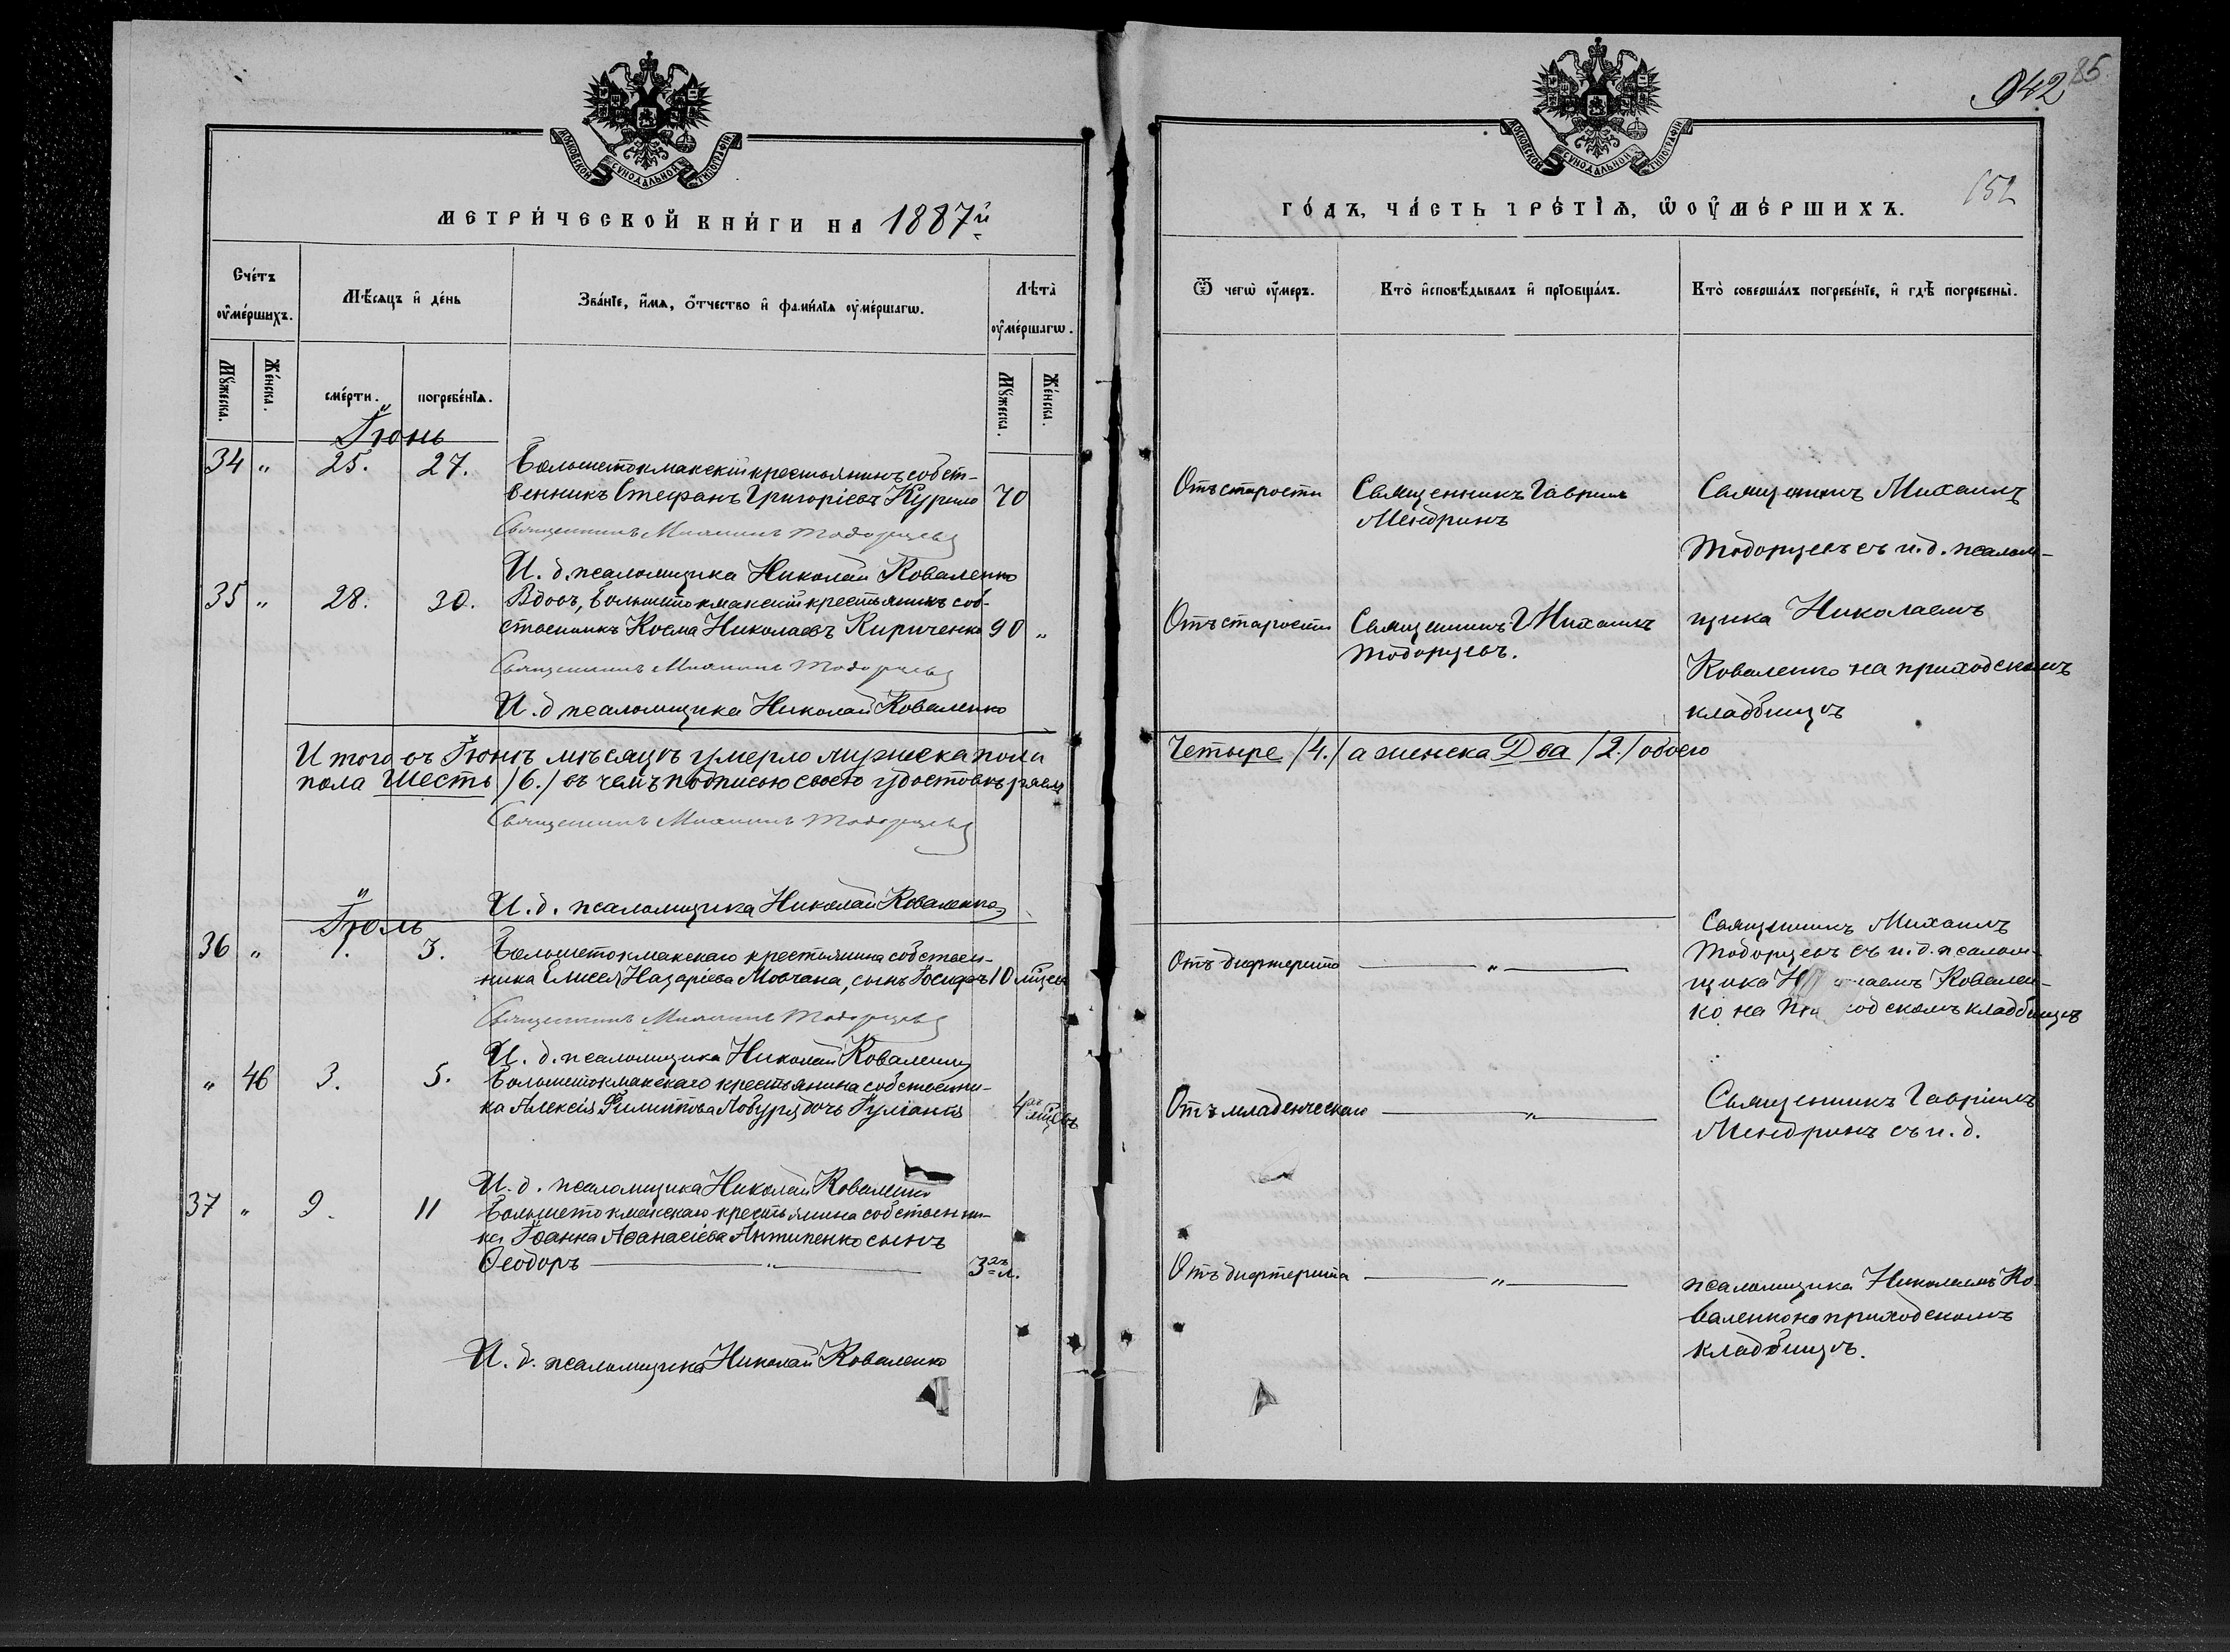 МОСКОВСКОЙ СУНОДАЛЬНОЙ ТИПОГРАФІИ
МЕТРИ́ЧЕСКОЙ КНИ́ГИ НА 1887й
Сче́тъ оу҆ме́ршихъ.
Мѣ́сяцъ и҆ де́нь
Зва́нїе, и҆́мѧ, ѻ҆́тчество и҆ фами́лїѧ оу҆ме́ршагѡ.
Лѣта̀ оу҆ме́ршагѡ.
Мꙋ́жеска.
Же́нска.
сме́рти.
погребе́нїѧ.
Мꙋ́жеска.
Же́нска.
Іюнь
34 " 25. 27. Большетокмакскій крестьянинъ собст-
венникъ Стефанъ Григоріевъ Курило 70
Священникъ Михаилъ Тодорцевъ
И. д. псаломщика Николай Коваленко
35 " 28. 30. Вдовъ, Большетокмакскій крестьянинъ соб-
ственникъ Косма Николаевъ Кириченко 90 "
Священникъ Михаилъ Тодорцевъ
И. д псаломщика Николай Коваленко
Итого въ Іюнѣ мѣсяцѣ умерло мужеска пола
пола Шесть /6./ въ чемъ подписью своею удостовѣряемъ
Священникъ Михаилъ Тодорцевъ
И. д. псаломщика Николай Коваленко
Іюль
36 " 1. 3. Большетокмакскаго крестьянина собствен-
ника Елисея Назаріева Мовчана, сынъ Іосифъ 10 мцев
Священникъ Михаилъ Тодорцевъ
И. д. псаломщика Николай Коваленко
" 46 3. 5. Большетокмакскаго крестьянина собственни-
ка Алексія Филиппова дочь Іуліанія 4 мцевъ
И. д. псаломщика Николай Коваленко
37 " 9. 11 Большетокмакскаго крестьянина собственни-
ка Іоанна Аѳанасіева Антипенко сынъ
Ѳеодоръ " 3хъ л.
И. д. псаломщика Николай Коваленко
942
85.
152
МОСКОВСКОЙ СУНОДАЛЬНОЙ ТИПОГРАФІИ
ГО́ДЪ, ЧА́СТЬ ТРЕ́ТЇѦ, Ѡ҆ ОУ҆МЕ́РШИХЪ.
Ѿ чегѡ̀ оу҆́меръ.
Кто̀ и҆сповѣ́дывалъ и҆ прїобща́лъ.
Кто̀ соверша́лъ погребе́нїе, и҆ гдѣ̀ погребены̀.
Отъ старости Священникъ Гавріилъ Священникъ Михаилъ
Мендринъ
Тодорцевъ съ и. д. псалом-
Отъ старости Священникъ Михаилъ щика Николаемъ
Тодорцевъ.
Коваленко на приходскомъ
кладбищѣ
Четыре /4./ а женска Два /2./ обоего
Священникъ Михаилъ
Отъ дифтерита " Тодорцевъ съ и. д. псалом-
щика Николаемъ Ковален-
ко на приходскомъ кладбищѣ
Отъ младенческаго " Священникъ Гавріилъ
Мендринъ съ и. д.
Отъ дифтерита " псаломщика Николаемъ Ко-
валенко на приходскомъ
кладбищѣ.